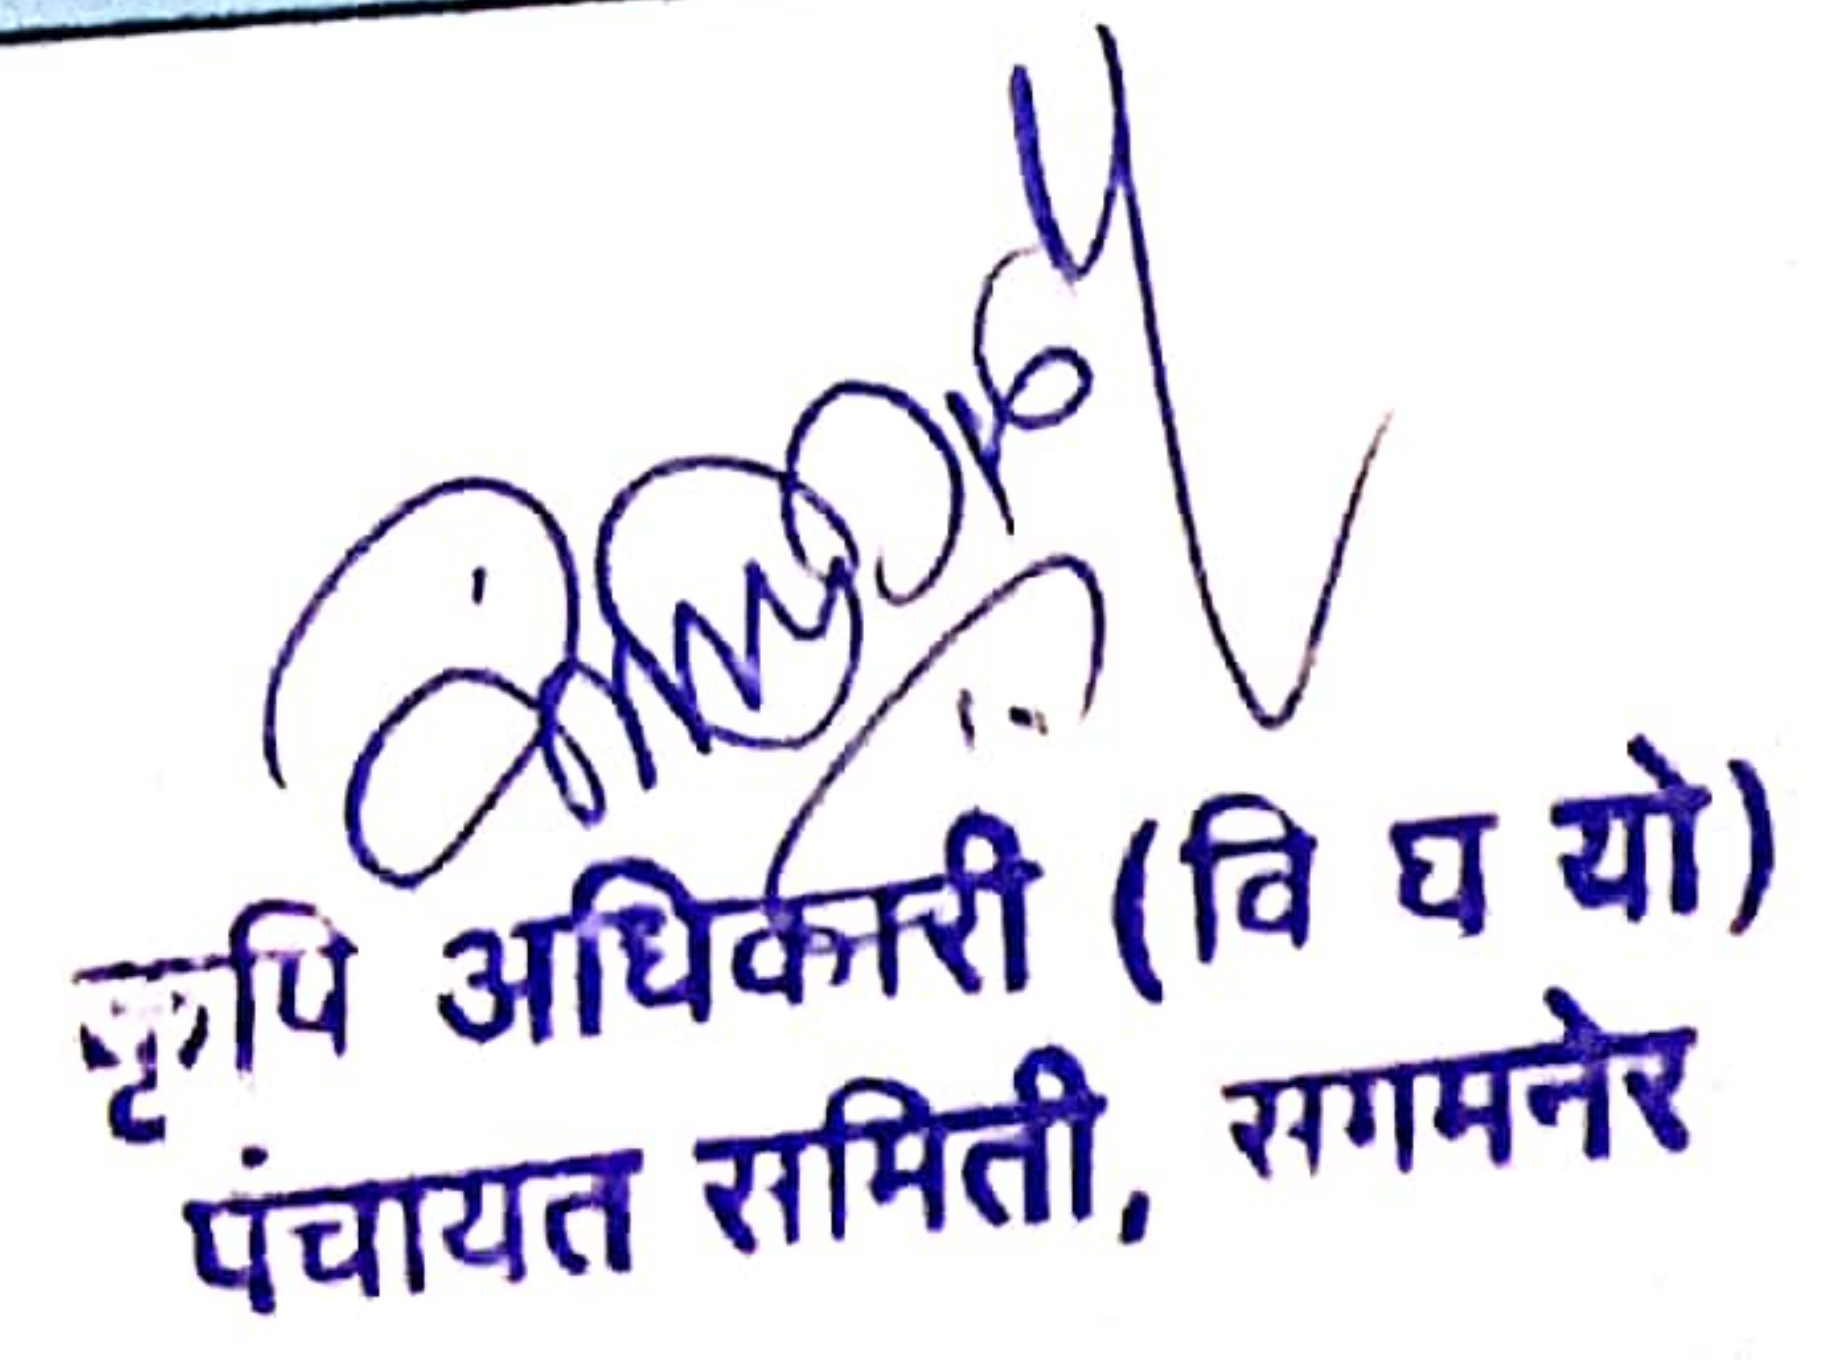 कृषि अधिकारी (वि घ यो)
पंचायत समिती, सगमनेर